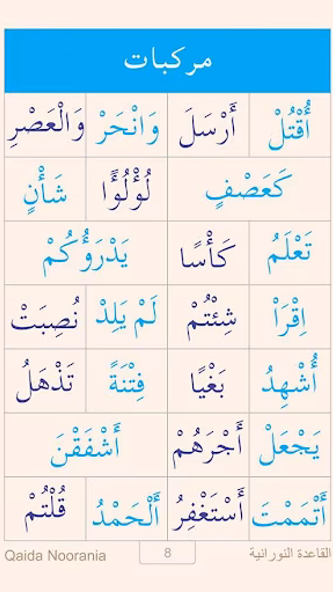 مركبات
أُقْتُلْ أَرْسَلَ وَانْحَرْ وَالْعَصْرِ
كَعَصْفٍ لُؤْلُؤًا شَأْنٍ
تَعْلَمُ كَأْسًا يَدْرَؤُكُمْ
اِقْرَاْ شِئْتُمْ لَمْ يَلِدْ نُصِبَتْ
أُشْهِدُ بَغْيًا فِتْنَةً تَذْهَلُ
يَجْعَلْ أَجْرَهُمْ أَشْفَقْنَ
أَتْمَمْتَ أَسْتَغْفِرُ أَلْحَمْدُ قُلْتُمْ
القاعدة النورانية 8 Qaida Noorania